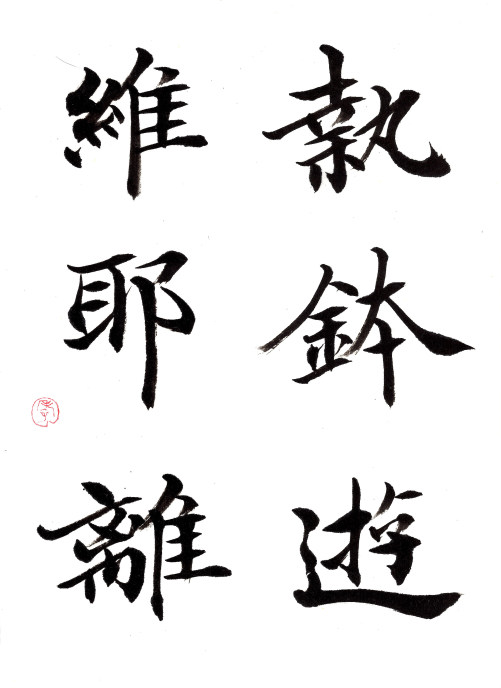 執鉢遊
維耶離